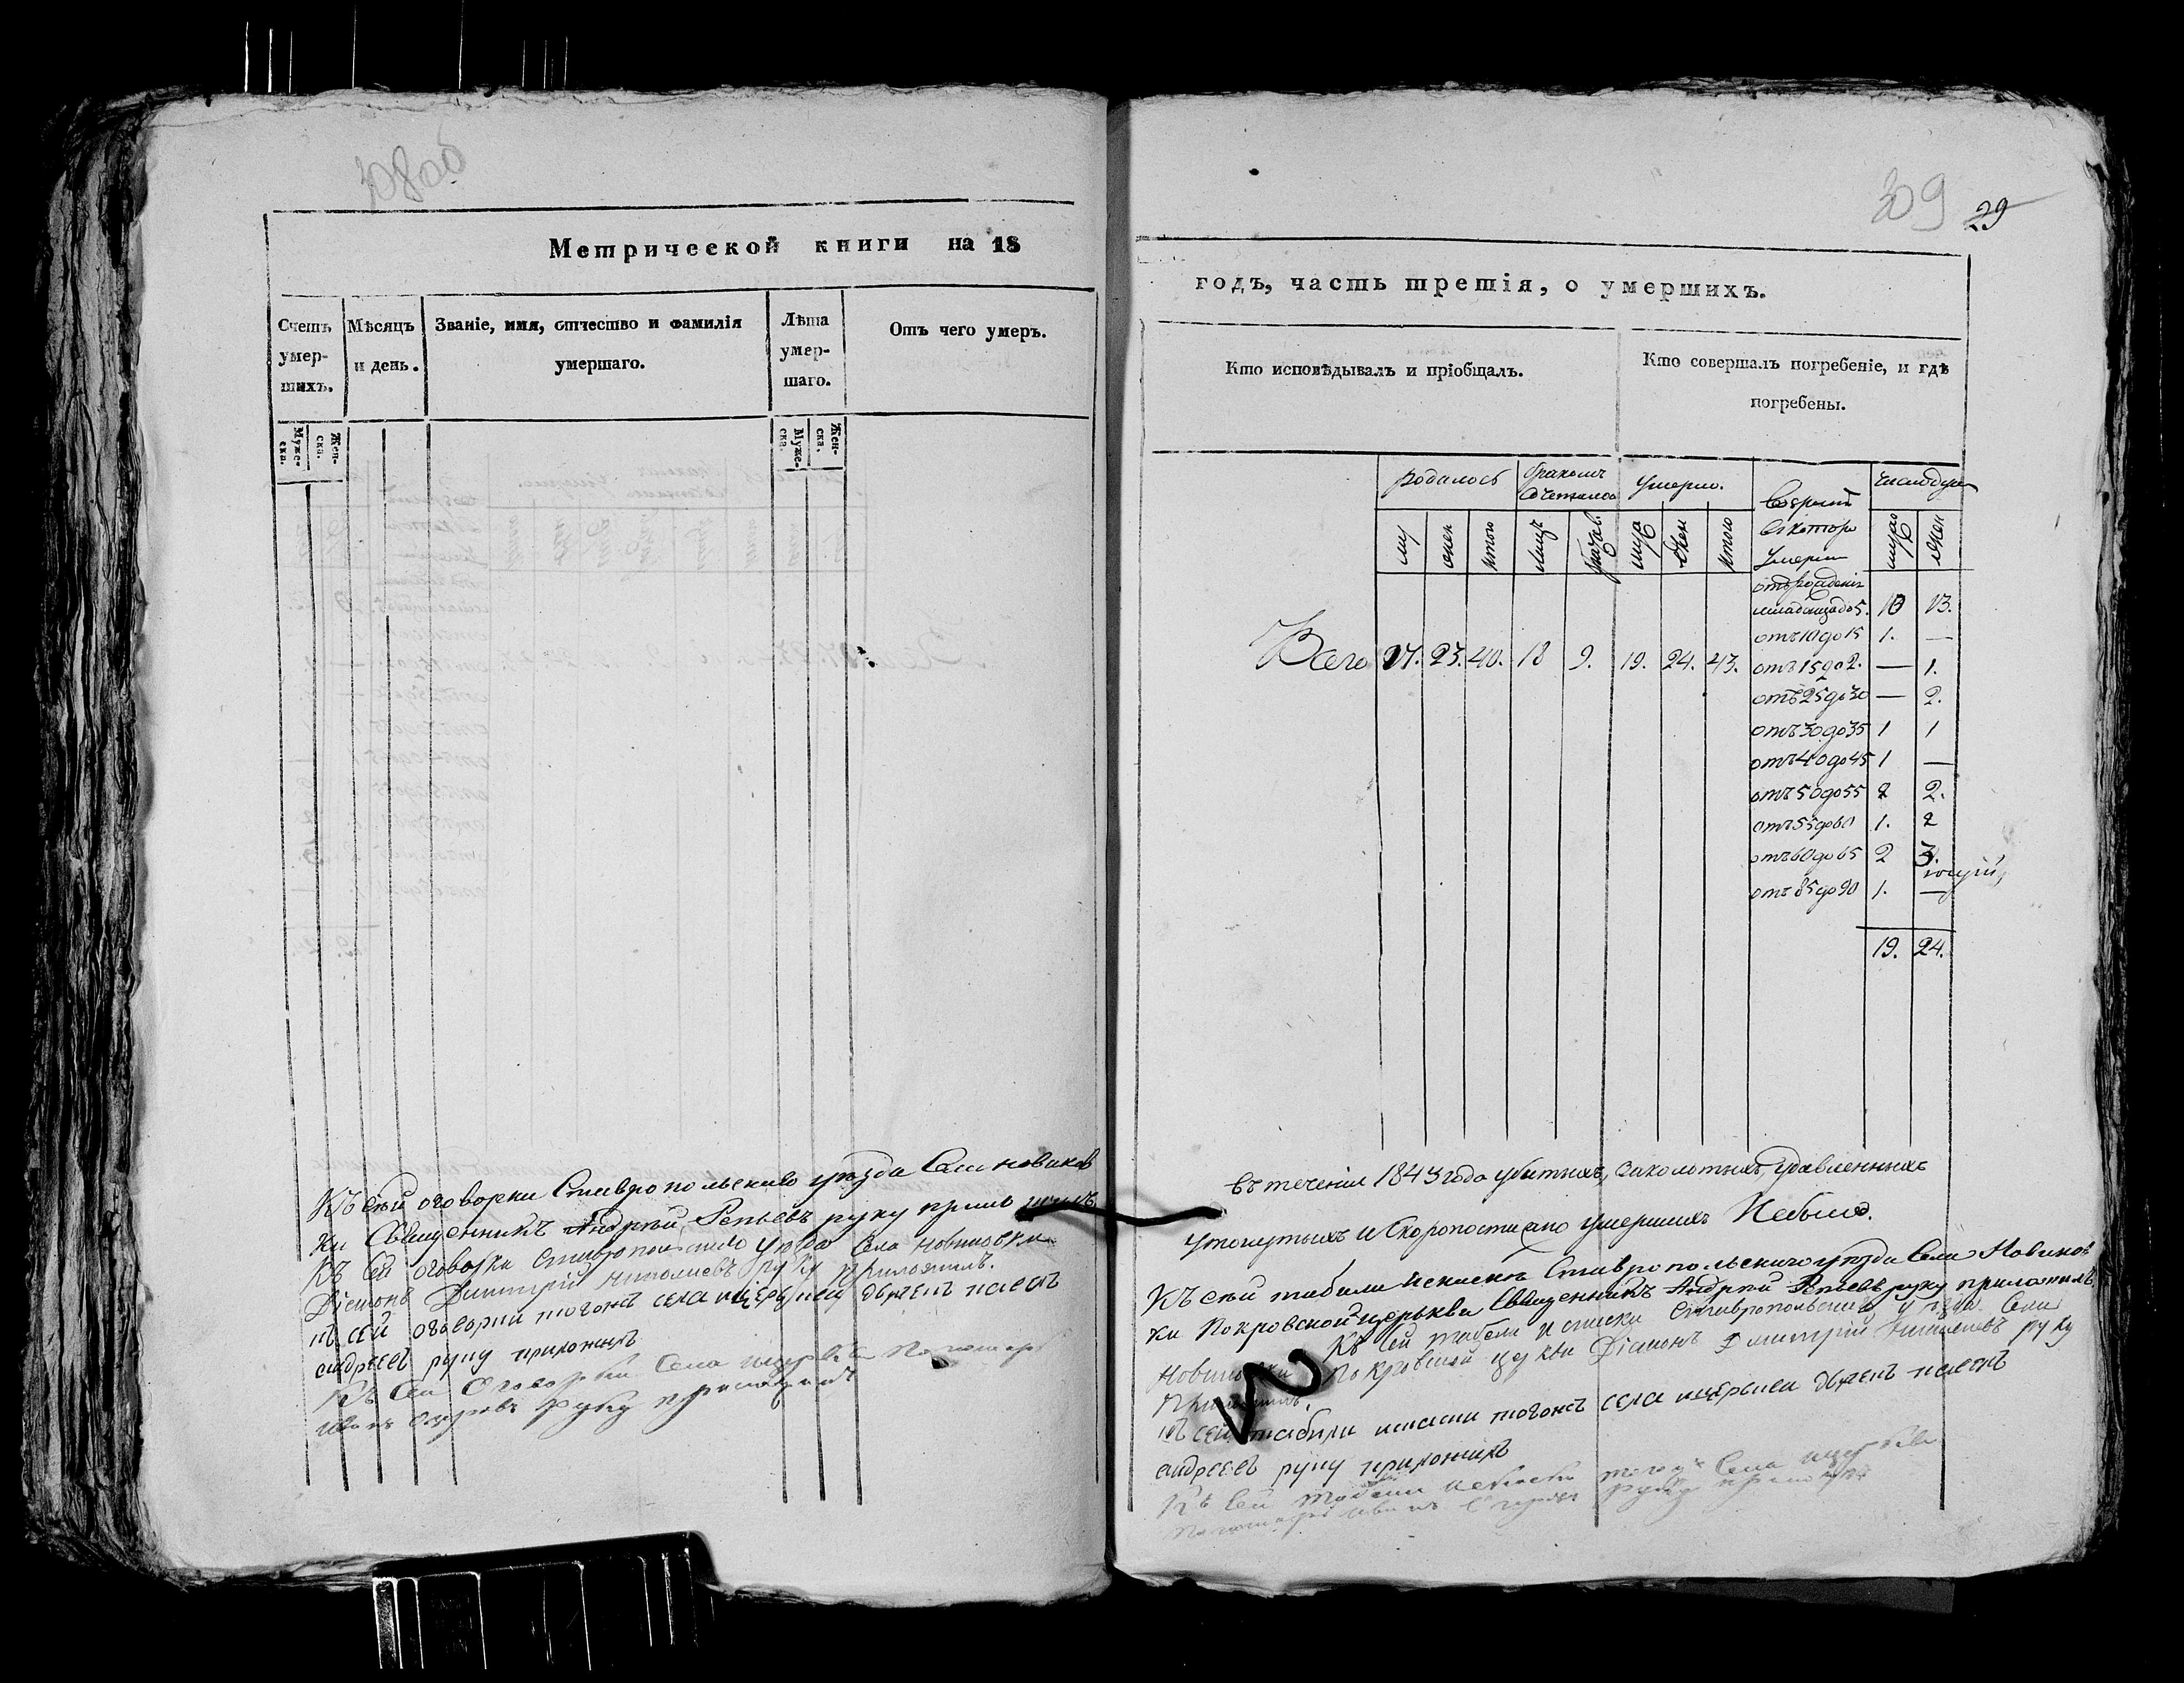 308об
Метрической книги на 18
Счетъ умер-шихъ.
Мѣсяцъ и день.
Званіе, имя, отчество и фамилія умершаго.
Лѣта умер-шаго.
Отъ чего умеръ.
Муже-ска.
Жен-ска.
Муже-ска.
Жен-ска.
Къ сей оговорки Ставропольскаго уѣзда Села Новиков
ки Священникъ Андрей Репьевъ руку приложилъ
Къ сей оговорки Ставропольскаго уѣзда Села Новиковки
Діаконъ Димитрій Николаевъ руку приложилъ.
къ сей оговорки тогожъ села
андреевъ руку приложилъ
Къ сей оговорки Села Пономарь
Иванъ руку приложилъ
309 29
годъ, часть третія, о умершихъ.
Кто исповѣдывалъ и пріобщалъ.
Кто совершалъ погребеніе, и гдѣ погребены.
родилось
бракомъ
умерло.
му
жен
итого
лицъ
муж
жен
итого
умерли
муж
жен
до 5. 10 13.
отъ 10 до 15 1. —
Всего 17. 23. 40. 18 9. 19. 24. 43.
отъ 15 до 2. — 1.
отъ 25 до 30 — 2.
отъ 30 до 35 1 1
отъ 40 до 45 1 —
отъ 50 до 55 2 2.
отъ 55 до 60 1. 2
отъ 60 до 65 2 3.
отъ 85 до 90 1. —
19. 24.
въ теченіи 1843 года убитыхъ, заколотыхъ, удавленныхъ
утонутыхъ и скоропостижно умершихъ Небыло.
Къ сей табели Ставропольскаго уѣзда Села Новиков
ки Покровской церькви Священникъ Андрей Репьевъ руку приложилъ
Къ сей табели и списки Ставропольскаго уѣзда Села
Новиковки Покровской церкви Діаконъ Димитрій Николаевъ руку
Приложилъ.
къ сей табели тогожъ села
андреевъ руку приложилъ
Къ сей табели тогожъ Села
Пономарь Иванъ руку приложилъ